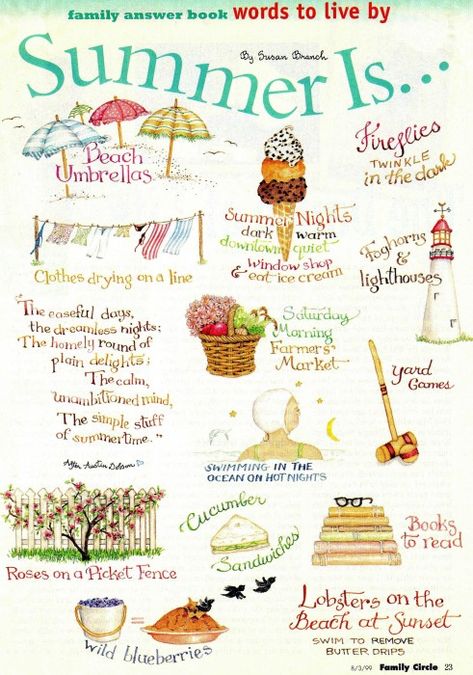 family answer book words to live by
Summer Is...
By Susan Branch
Beach
Umbrellas
Fireflies
TWINKLE
in the dark
Summer Nights
dark warm
downtown quiet
window shop
& eat ice cream
Clothes drying on a line
Foghorns
&
lighthouses
"The easeful days,
the dreamless nights;
The homely round of
plain delights;
The calm,
unambitioned mind,
The simple stuff
of summertime."
After Austin Dobson
Saturday
Morning
Farmers'
Market
yard
Games
SWIMMING IN THE
OCEAN ON HOT NIGHTS
Roses on a Picket Fence
Cucumber
Sandwiches
Books
to read
wild blueberries
Lobsters on the
Beach at Sunset
SWIM TO REMOVE
BUTTER DRIPS
8/3/99 Family Circle 23